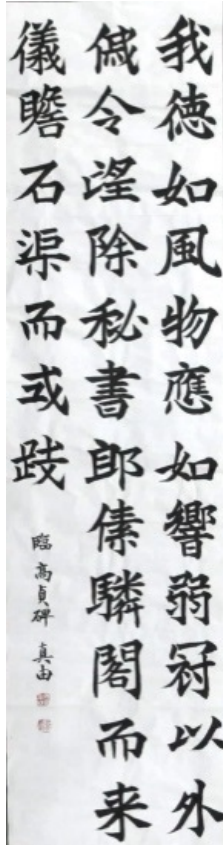 我徳如風物應如響弱冠以外
俶令望除秘書郎傃驎閣而来
儀瞻石渠而或跂
臨高貞碑 真由